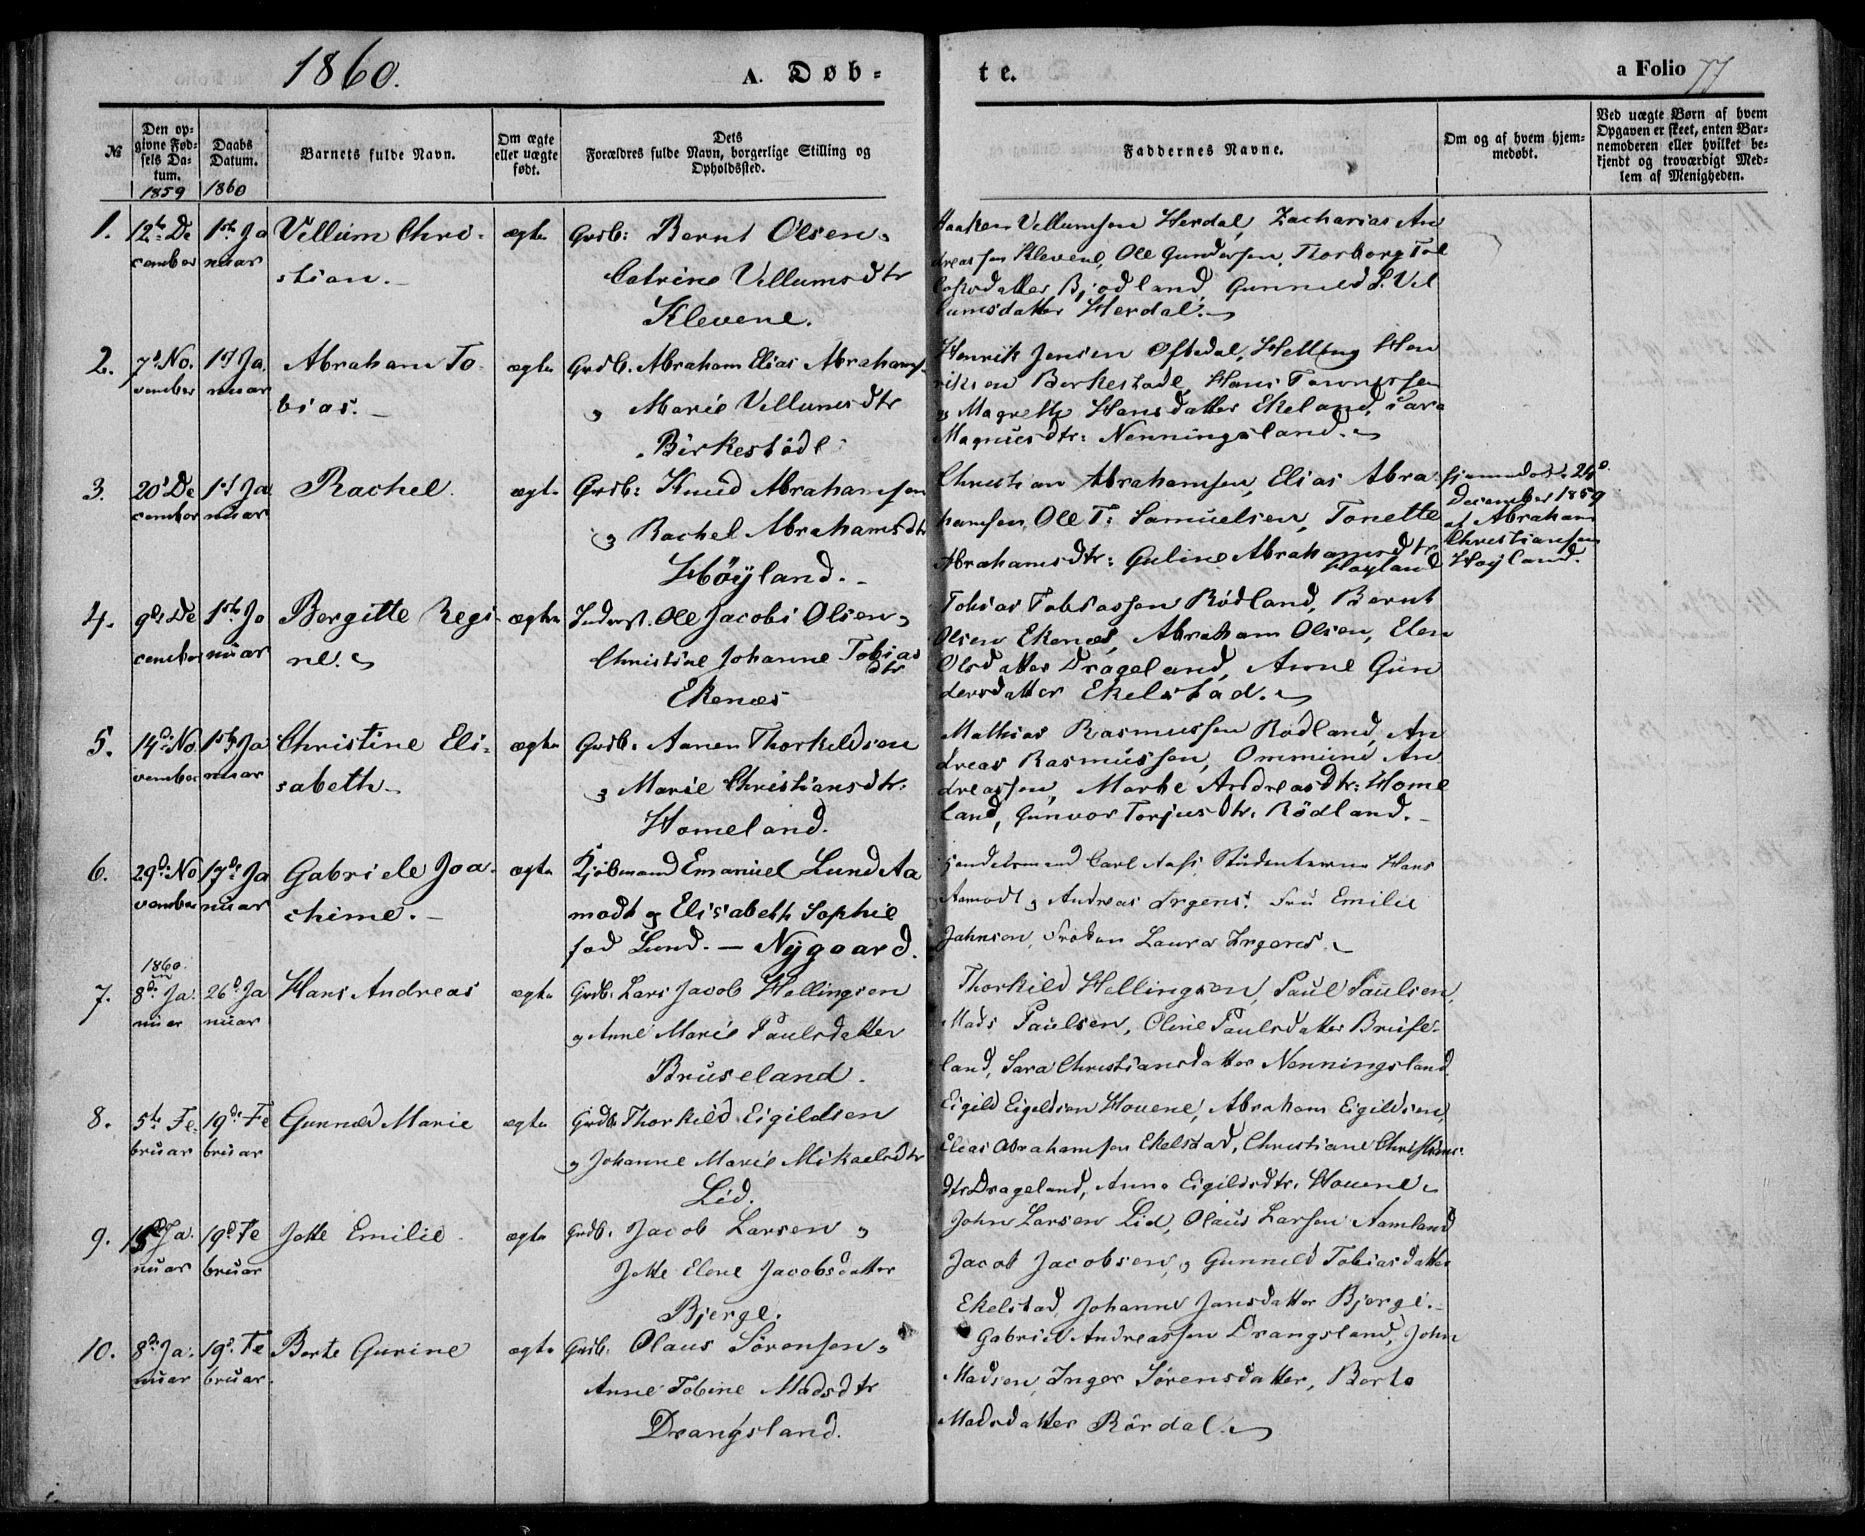 1860.
A. Døb-
te.
a Folio 77
№
Den op-
givne Fød-
sels Da-
tum.
1859
Daabs
Datum.
1860
Barnets fulde Navn.
Om ægte
eller uægte
født.
Dets
Forældres fulde Navn, borgerlige Stilling og
Opholdssted.
Faddernes Navne.
Om og af hvem hjem-
medøbt.
Ved uægte Børn af hvem
Opgaven er skeet, enten Bar-
nemoderen eller hvilket be-
kjendt og troværdigt Med-
lem af Menigheden.
1.
12te De
cember
1ste Ja
nuar
Villum Chri-
stian.
ægte
Grdb: Bernt Olsen
Catrine Villumsdtr
Klevene.
Haaken Villumsen Herdal, Zacharias An
dreassen Klevene, Ole Gundersen, Thorborg Tol
Bjodland, Gunneld S. Vil
lumsdatter Herdal.
2.
7d No
vember
1st Ja
nuar
Abraham To-
bias.
ægte
Grdb. Abraham Elias Abrahams
og Marie Villumsdtr
Birkestöd
Henrik Jensen Oftedal, Helling Hen
riksen Berkestode, Hans Tønnessen
og Magrethe Hansdatter Ekeland, Sara
Magnusdtr: Nenningsland.
3.
20d De
cember
1st Ja
nuar
Rachel.
ægte
Grdb: Knud Abrahamsen
og Rachel Abrahamsdtr
Höÿland.
Christian Abrahamsen, Elias Abra
hamsen, Ole T: Samuelsen, Tonette
Abrahamsdtr: Guline Abrahamsdtr
Høyland
hjemmedøbt 24d
December 1859
af Abraham
Christiansen
Høyland.
4.
9de De
cember
1ste Ja
nuar
Bergitte Regi-
ne.
ægte
Inderst. Ole Jacobi Olsen
Christine Johanne Tobias
dtr
Ekenæs
Tobias Tobiassen Rødland, Bernt
Olsen Ekenæs, Abraham Olsen, Elen
Olsdatter Drageland, Anne Gun
dersdatter Ekelstad.
5.
14d No
vember
1ste Ja
nuar
Christine Eli-
sabeth
ægte
Grdb. Aanen Thorkildsen
og Marie Christiansdtr:
Homeland.
Mathias Rasmussen Rødland, An
dreas Rasmussen, Ommund An
dreassen, Marte Andreasdtr: Home
land, Gunvor Torjusdtr. Rödland.
6.
29d No
vember
17d Ja
nuar
Gabriele Joa-
chime.
ægte
Kjøbmand Emanuel Lund Aa
modt og Elisabeth Sophie
fød Lund. — Nygaard.
Handelsmand Carl Studenterne Hans
Aamodt og Andreas Irgens. Fru Emilie
Jahnson, Frøken Laura Irgens.
7.
1860.
8d Ja
nuar
26d Ja
nuar
Hans Andreas
ægte
Grdb. Lars Jacob Hellingsen
og Anne Marie Paulsdatter
Bruseland.
Thorkild Hellingsen, Paul Paulsen,
Mads Paulsen, Oline Paulsdatter Bruse-
land, Sara Christiansdatter Nenningsland.
8.
5te Fe-
bruar
19de Fe
bruar
Gunneld Marie
ægte
Grdb Thorkild Eigildsen
og Johanne Marie Mikaelsdtr
Lid.
Eigild Eigildsen Houene, Abraham Eigildsen,
Elias Abrahamsen Ekelstad, Christiane Christians-
dtr Drageland, Anne Eigildsdtr. Houene
9.
15d Ja-
nuar
19d Fe
bruar
Jotte Emilie
ægte
Grdb. Jacob Larsen og
Jotte Elene Jacobsdatter
Bjerge.
John Larsen Lid, Olaus Larsen Aamland
Jacob Jacobsen, og Gunneld Tobiasdatter
Ekelstad, Johanne Jansdatter Bjerge.
10.
8de Ja-
nuar
19d Fe
bruar.
Berte Gurine
ægte
Grdb. Olaus Sørensen
Anne Tobine Madsdtr
Drangsland.
Gabriel Andreassen Drangsland, John
Madsen, Inger Sørensdatter, Berte
Madsdatter Rørdal.